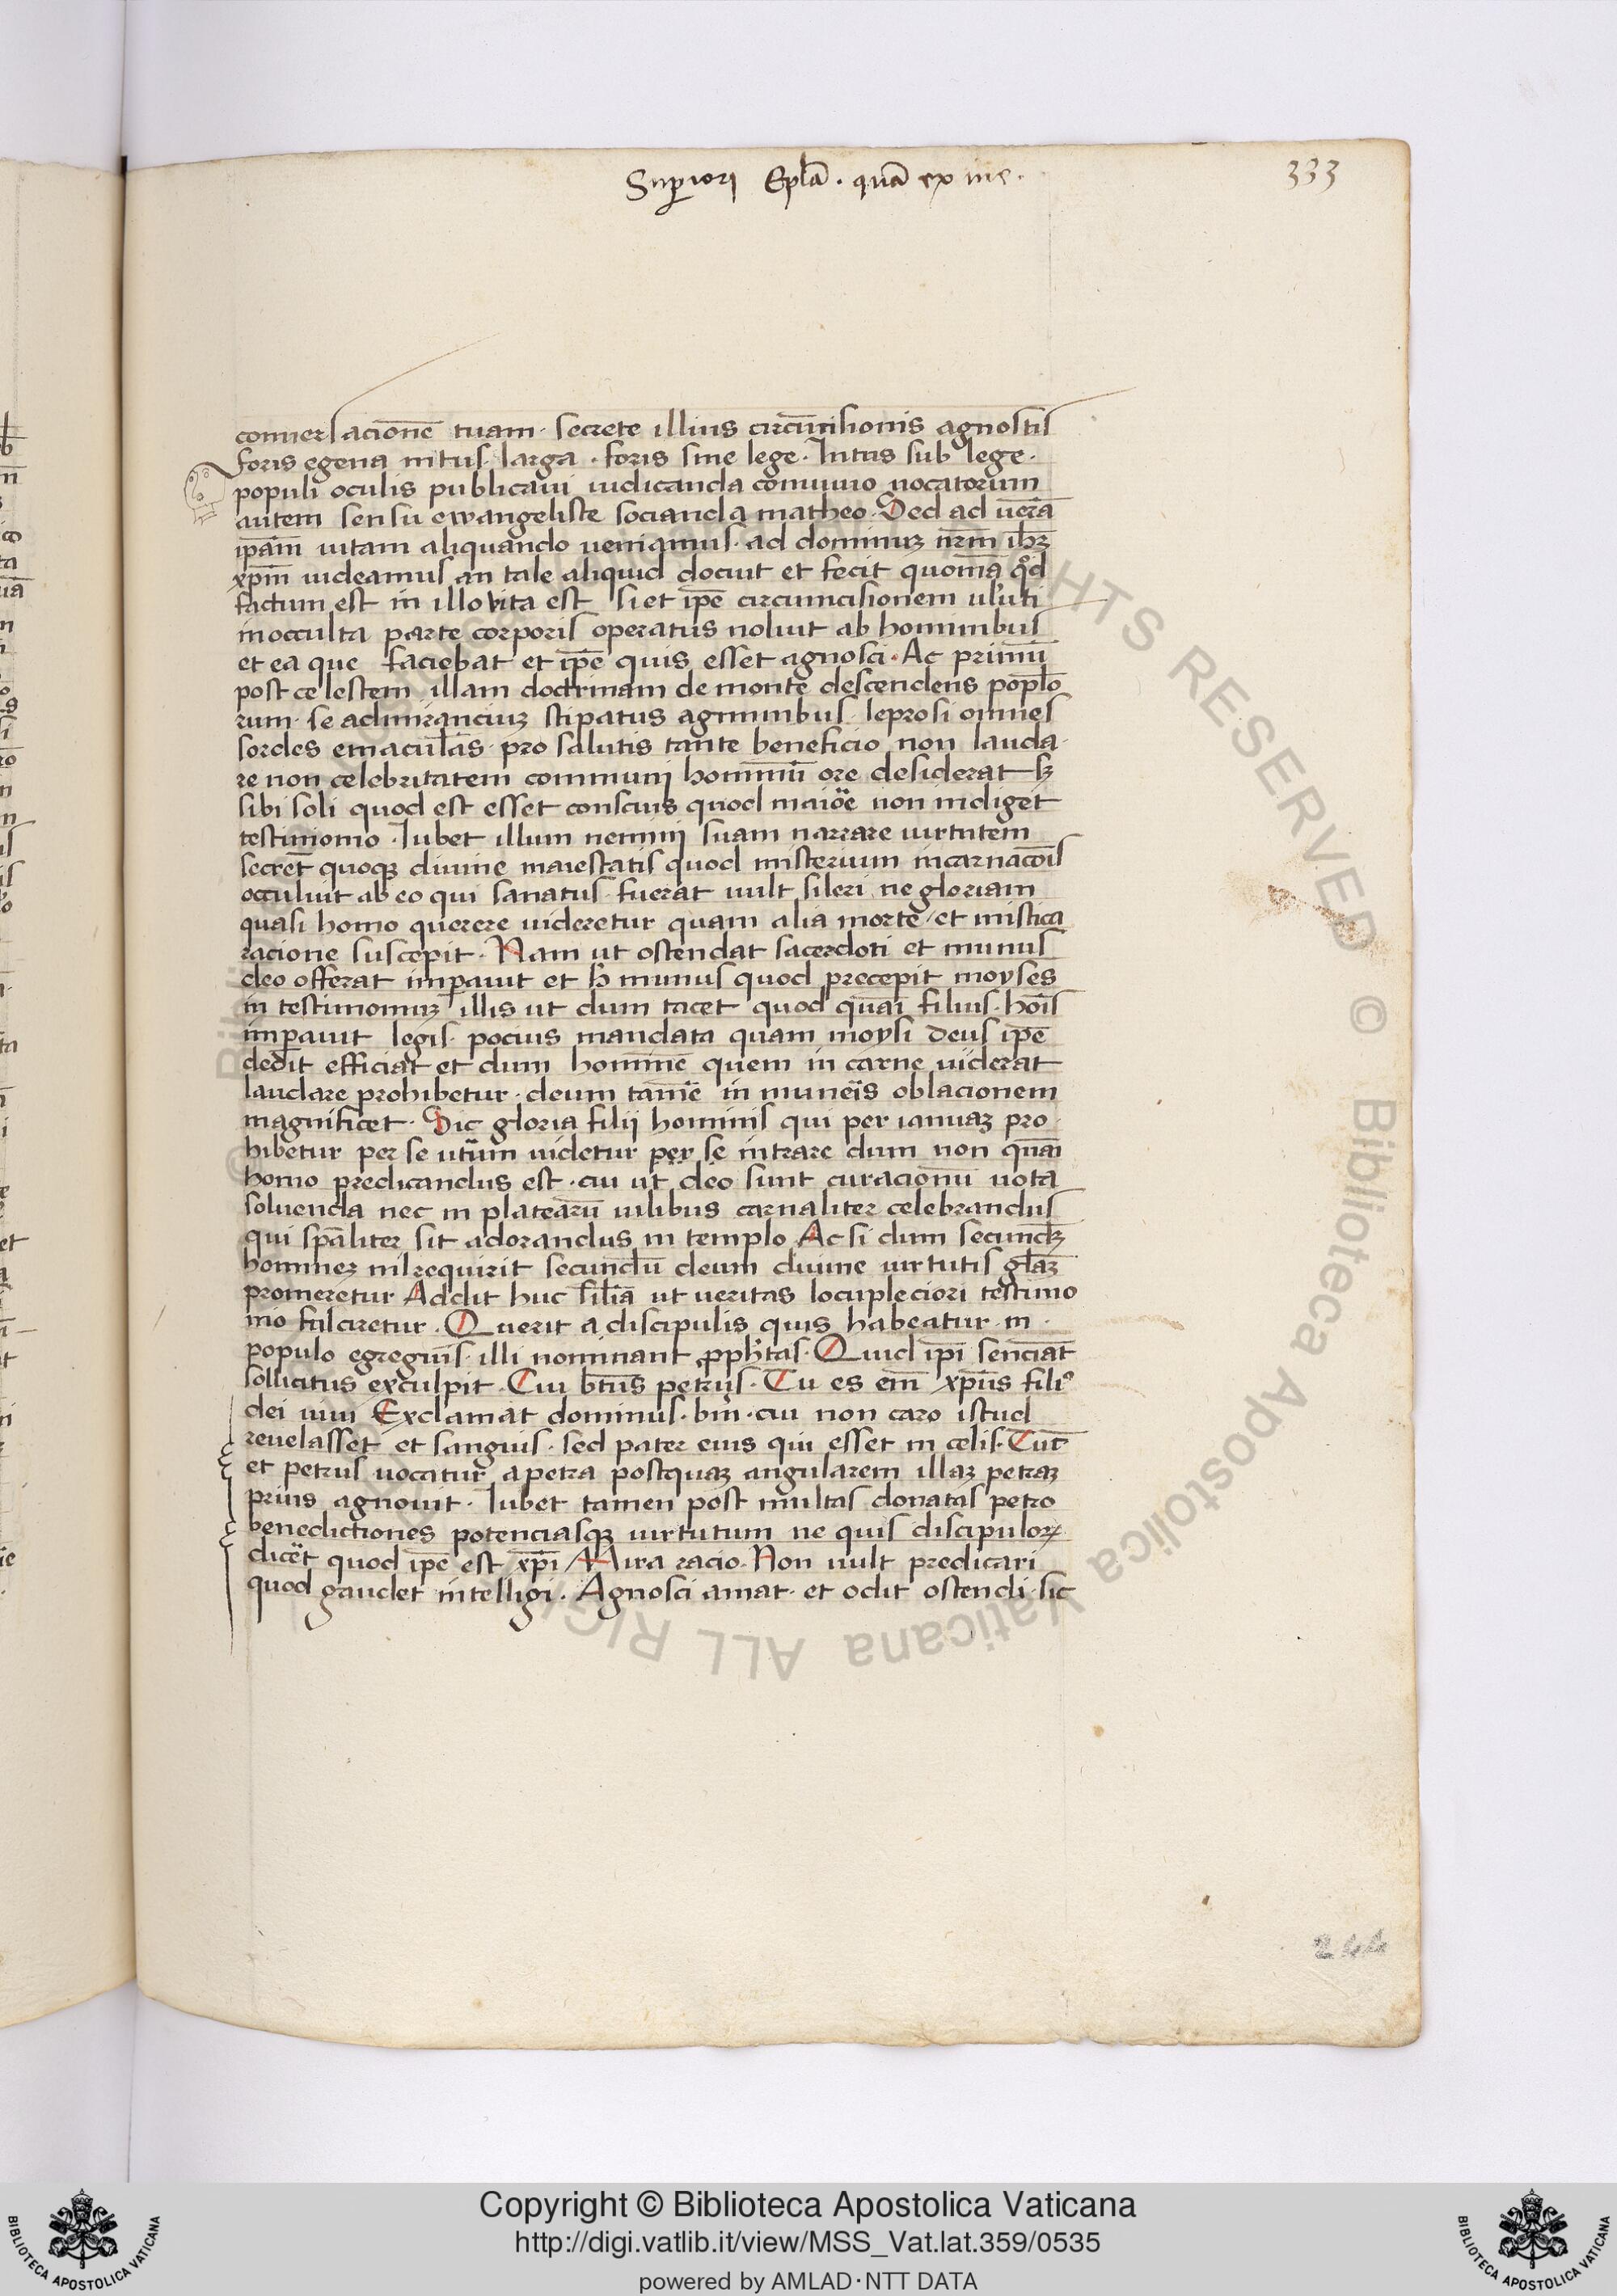 Superiori Epl̄a . quā ex me .
333
conuersacionē tuam · secrete illius circūcisionis agnostis
foris egena intus larga · foris sine lege · Intus sub lege ·
populi oculis publicaui iudicanda conuiuio uocatorum
autem sensu ewangeliste socianda matheo · Sed ad uerā
ip̄am uitam aliquando ueniamus · ad dominuꝫ nr̄m ih̄ꝫ
xp̄m uideamus an tale aliquid docuit et fecit quoniā qd̄
factum est in illo vita est si et ip̄e circumcisionem
in occulta parte corporis operatus noluit ab hominibus
et ea que faciebat et ip̄e quis esset agnosci · Ac primū
post celestem illam doctrinam de monte descendens popl̄o
rum · se admiranciuꝫ stipatus agminibus leprosi omnes
sordes emaculās · pro salutis tante beneficio non lauda
re non celebritatem communi hominū ore desiderat sꝫ
sibi soli quod est esset conscius quod maiōe non indiget
testimonio · Iubet illum nemini suam narrare uirtutem
secret̄ quoqꝫ diuine maiestatis quod misterium incarnacōis
occuluit ab eo qui sanatus · fuerat uult sileri ne gloriam
quasi homo querere uideretur quam alia morte / et mistica
racione suscepit · Nam ut ostendat sacerdoti et munus
deo offerat imꝑauit et h̄ munus quod precepit moyses
in testimoniuꝫ illis ut dum tacet quod quāi filius · hōis
imꝑauit legis · pocius mandata quam moysi deus ip̄e
dedit efficiat et dum hominē quem in carne uiderat
laudare prohibetur · deum tamē in munēis oblacionem
magnificet · Sic gloria filij hominis qui per ianuaꝫ pro
hibetur per se uidetur per se intrare dum non quāi
homo predicandus est · cui ut deo sunt curacionū uota
soluenda nec in platearū uilibus carnaliter celebrandus
qui sp̄aliter sit adorandus in templo Ac si dum secundꝫ
homineꝫ nil requirit secundū deum diuine uirtutis gl̄aꝫ
promeretur Addit huc filiā ut ueritas locupleciori testimo
nio fulciretur · Querit a discipulis quis habeatur · in ·
populo egregius · illi nominant ꝓph̄tas · Quid ip̄i senciāt
sollicitus exculpit · Cui bt̄us petrus · Tu es em̄ xp̄us fili⁹
dei uiui Exclamat dominus · bm̄ · cui non caro istud
reuelasset et sanguis · sed pater eius qui esset in celis · Tūc
et petrus uocatur a petra postquaꝫ angularem illaꝫ petraꝫ
prius agnouit · Iubet tamen post multas donatas petro
benedictiones potenciasqꝫ uirtutum ne quis discipuloꝝ
dicēt quod ip̄e est xp̄i / Mira racio · Non uult predicari
quod gaudet intelligi · Agnosci amat · et odit ostendi · sic
244
© Biblioteca Apostolica Vaticana ALL RIGHTS RESERVED
Copyright © Biblioteca Apostolica Vaticana
http://digi.vatlib.it/view/MSS_Vat.lat.359/0535
powered by AMLAD·NTT DATA
BIBLIOTECA APOSTOLICA VATICANA
BIBLIOTECA APOSTOLICA VATICANA